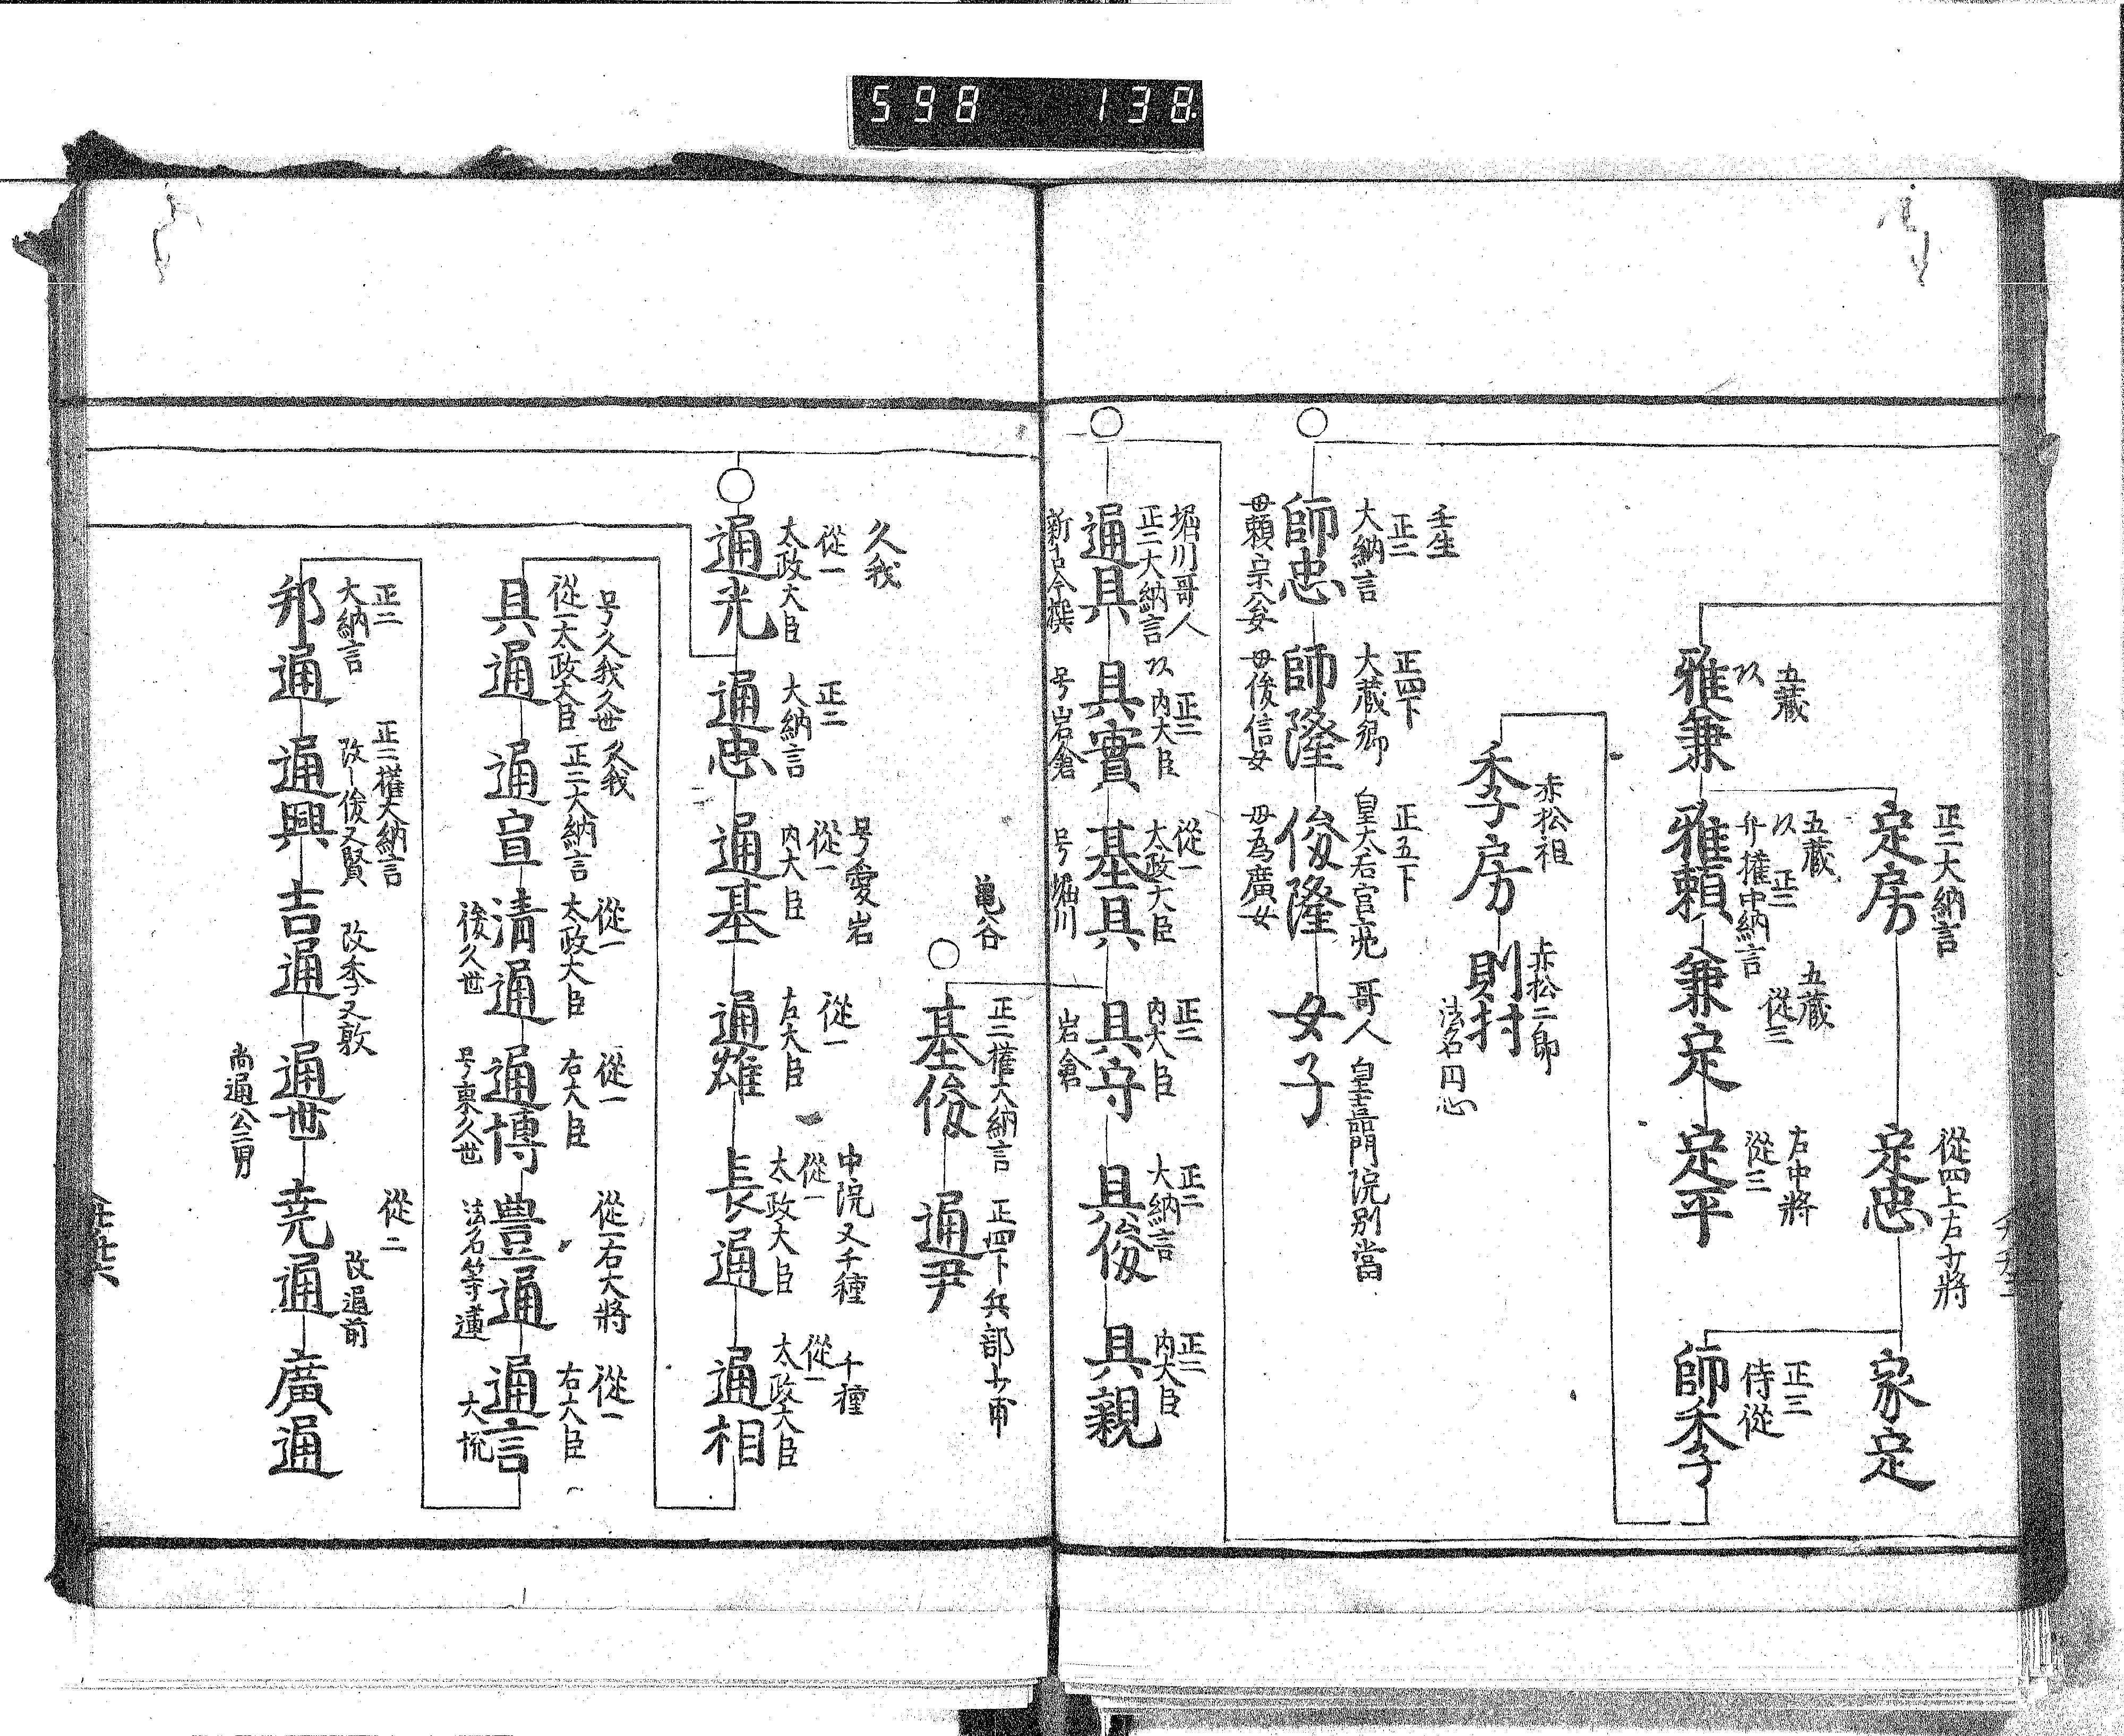 598 138
正二大納言
定房
從四上右少將
定忠
家定
五蔵
雅兼
五蔵
正二
弁權中納言
雅頼
五蔵
從三
兼定
右中將
從三
定平
正三
侍從
師季
赤松祖
季房
赤松二郎
則村
法名円心
壬生
正二
大納言
師忠
母頼宗公女
正四下
大蔵卿
師隆
母俊信女
正五下
皇太后宮亮
俊隆
母為廣女
哥人
皇嘉門院別當
女子
堀川哥人
正二大納言
通具
新古今撰
正二
内大臣
具實
号岩倉
從一
太政大臣
基具
号堀川
正二
内大臣
具守
岩倉
正二
大納言
具俊
正二
内大臣
具親
亀谷
正二權大納言
基俊
正四下兵部少甫
通尹
久我
從一
太政大臣
通光
正二
大納言
通忠
号愛岩
從一
内大臣
通基
從一
右大臣
通雄
中院又千種
從一
太政大臣
長通
千種
從一
太政大臣
通相
号久我久世
從一太政大臣
具通
久我
正二大納言
通宣
從一
太政大臣
清通
後久世
從一
右大臣
通博
号東久世
從一右大將
豊通
從一
右大臣
通言
正二
大納言
邦通
正二權大納言
改俊又賢
通興
改季又敦
吉通
通世
尚通公二男
從二
改通前
尭通
廣通